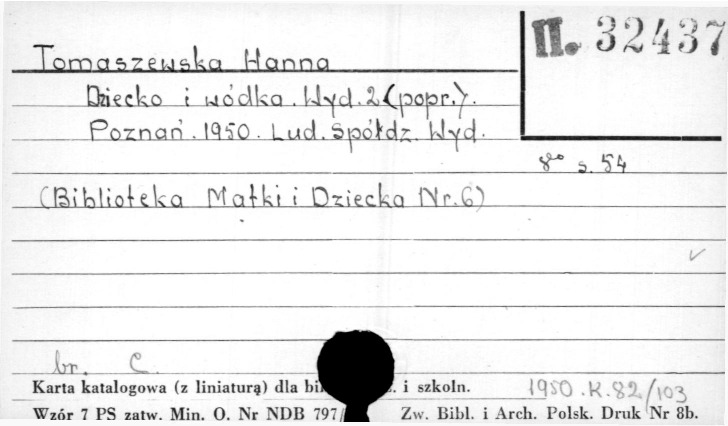 II. 32437
Tomaszewska Hanna
Dziecko i wódka. Wyd. 2 (popr.).
Poznań. 1950. Lud. Spółdz. Wyd.
8° s. 54
(Biblioteka Matki i Dziecka Nr. 6)
br. C.
Karta katalogowa (z liniaturą) dla i szkoln.
1950.K.82/103
Wzór 7 PS zatw. Min. O. Nr NDB 797/ Zw. Bibl. i Arch. Polsk. Druk Nr 8b.